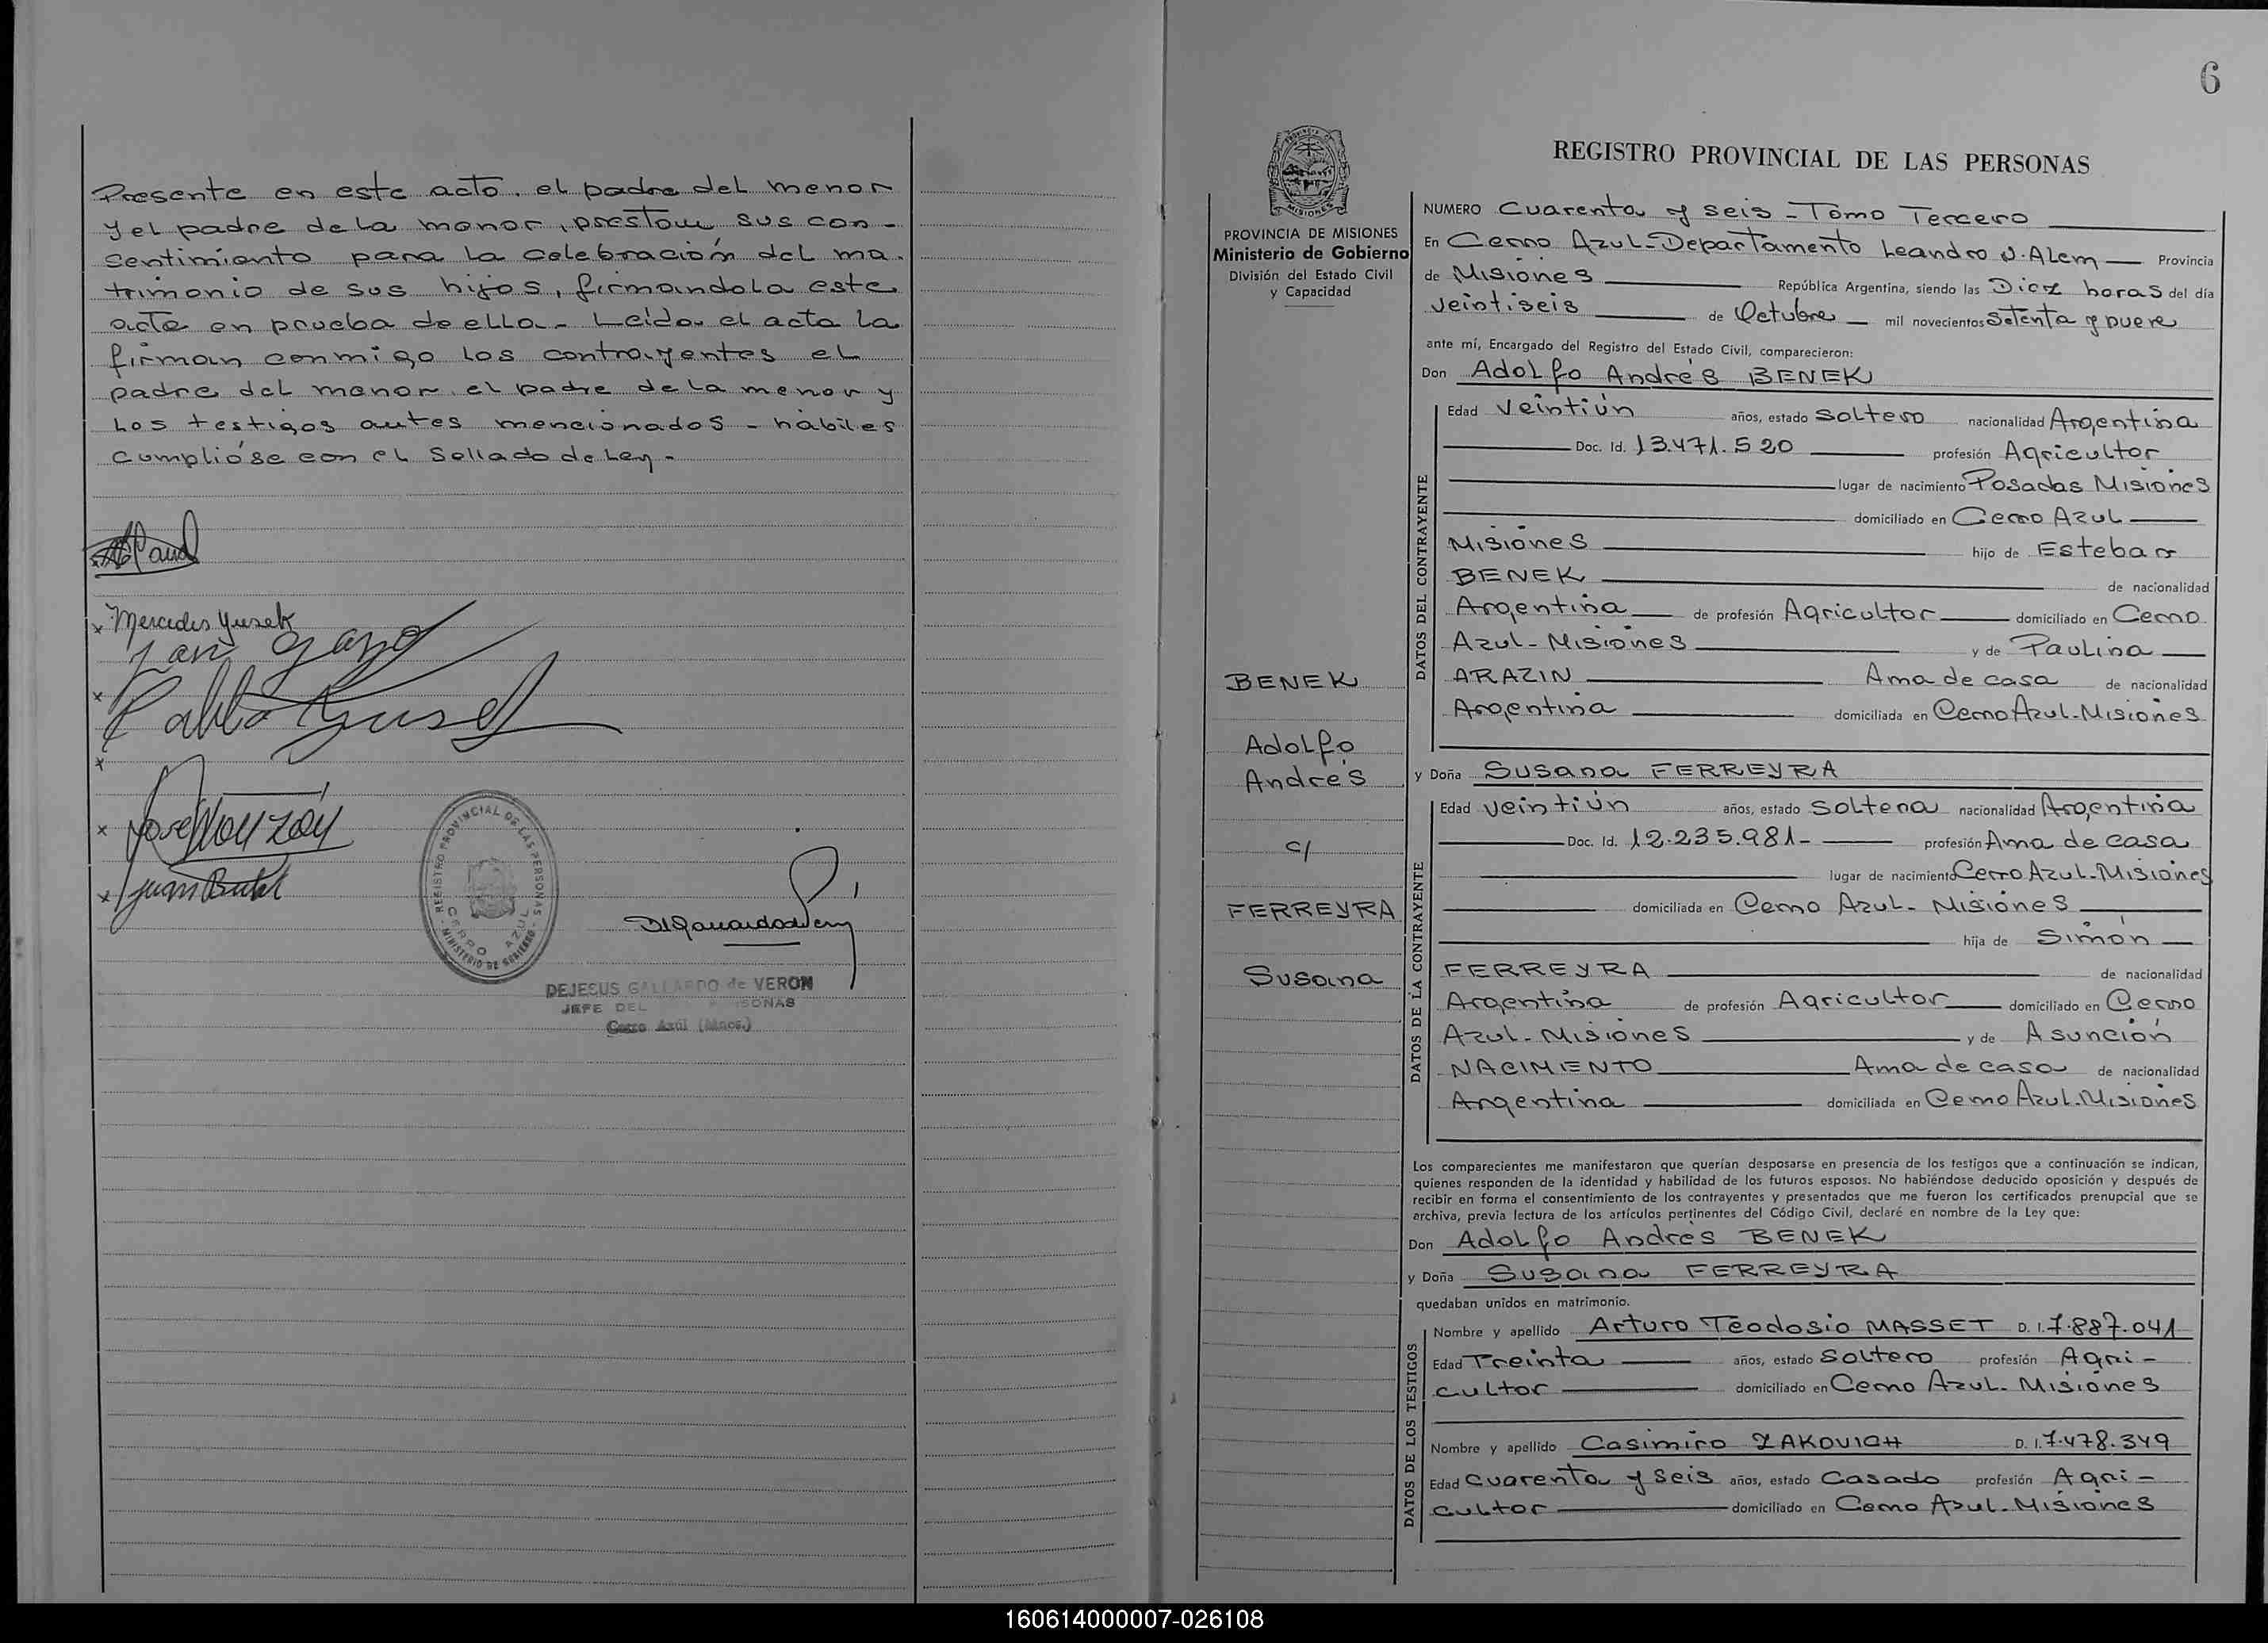 Presente en este acto, el padre del menor
y el padre de la menor, prestan sus con-
sentimiento para la celebración del ma-
trimonio de sus hijos, firmandola este
acto en prueba de ella.- Leída el acta la
firman conmigo los contrayentes el
padre del menor el padre de la menor y
los testigos antes mencionados - hábiles
cumplióse con el sellado de Ley.-
x Mercedes Yusek
x
x
x
x Juan
REGISTRO PROVINCIAL DE LAS PERSONAS
CERRO AZUL
MINISTERIO DE GOBIERNO
DEJESUS GALLARDO de VERON
JEFE DEL PERSONAS
Cerro Azúl (Mnes.)
6
MISIONES
PROVINCIA DE MISIONES
Ministerio de Gobierno
División del Estado Civil
y Capacidad
BENEK
Adolfo
Andrés
c/
FERREYRA
Susana
REGISTRO PROVINCIAL DE LAS PERSONAS
NUMERO Cuarenta y seis - Tomo Tercero
En Cerro Azul - Departamento Leandro N. Alem Provincia
de Misiones República Argentina, siendo las Diez horas del día
veintiseis de Octubre mil novecientos Setenta y nueve
ante mí, Encargado del Registro del Estado Civil, comparecieron:
Don Adolfo Andrés BENEK
DATOS DEL CONTRAYENTE
Edad Veintiún años, estado Soltero nacionalidad Argentina
Doc. Id. 13.471.520 profesión Agricultor
lugar de nacimiento Posadas Misiones
domiciliado en Cerro Azul
Misiones hijo de Esteban
BENEK de nacionalidad
Argentina de profesión Agricultor domiciliado en Cerro
Azul - Misiones y de Paulina
ARAZIN Ama de casa de nacionalidad
Argentina domiciliada en Cerro Azul - Misiones
y Doña Susana FERREYRA
DATOS DE LA CONTRAYENTE
Edad Veintiún años, estado Soltera nacionalidad Argentina
Doc. Id. 12.235.981- profesión Ama de casa
lugar de nacimiento Cerro Azul - Misiones
domiciliada en Cerro Azul - Misiones
hija de Simón
FERREYRA de nacionalidad
Argentina de profesión Agricultor domiciliado en Cerro
Azul - Misiones y de Asunción
NACIMIENTO Ama de casa de nacionalidad
Argentina domiciliada en Cerro Azul - Misiones
Los comparecientes me manifestaron que querían desposarse en presencia de los testigos que a continuación se indican,
quienes responden de la identidad y habilidad de los futuros esposos. No habiéndose deducido oposición y después de
recibir en forma el consentimiento de los contrayentes y presentados que me fueron los certificados prenupcial que se
archiva, previa lectura de los artículos pertinentes del Código Civil, declaré en nombre de la Ley que:
Don Adolfo Andrés BENEK
y Doña Susana FERREYRA
quedaban unidos en matrimonio.
DATOS DE LOS TESTIGOS
Nombre y apellido Arturo Teodosio MASSET D. I. 7.887.041
Edad Treinta años, estado Soltero profesión Agri-
cultor domiciliado en Cerro Azul - Misiones
Nombre y apellido Casimiro ZAKOVICH D. I. 7.478.349
Edad Cuarenta y seis años, estado Casado profesión Agri-
cultor domiciliado en Cerro Azul - Misiones
160614000007-026108